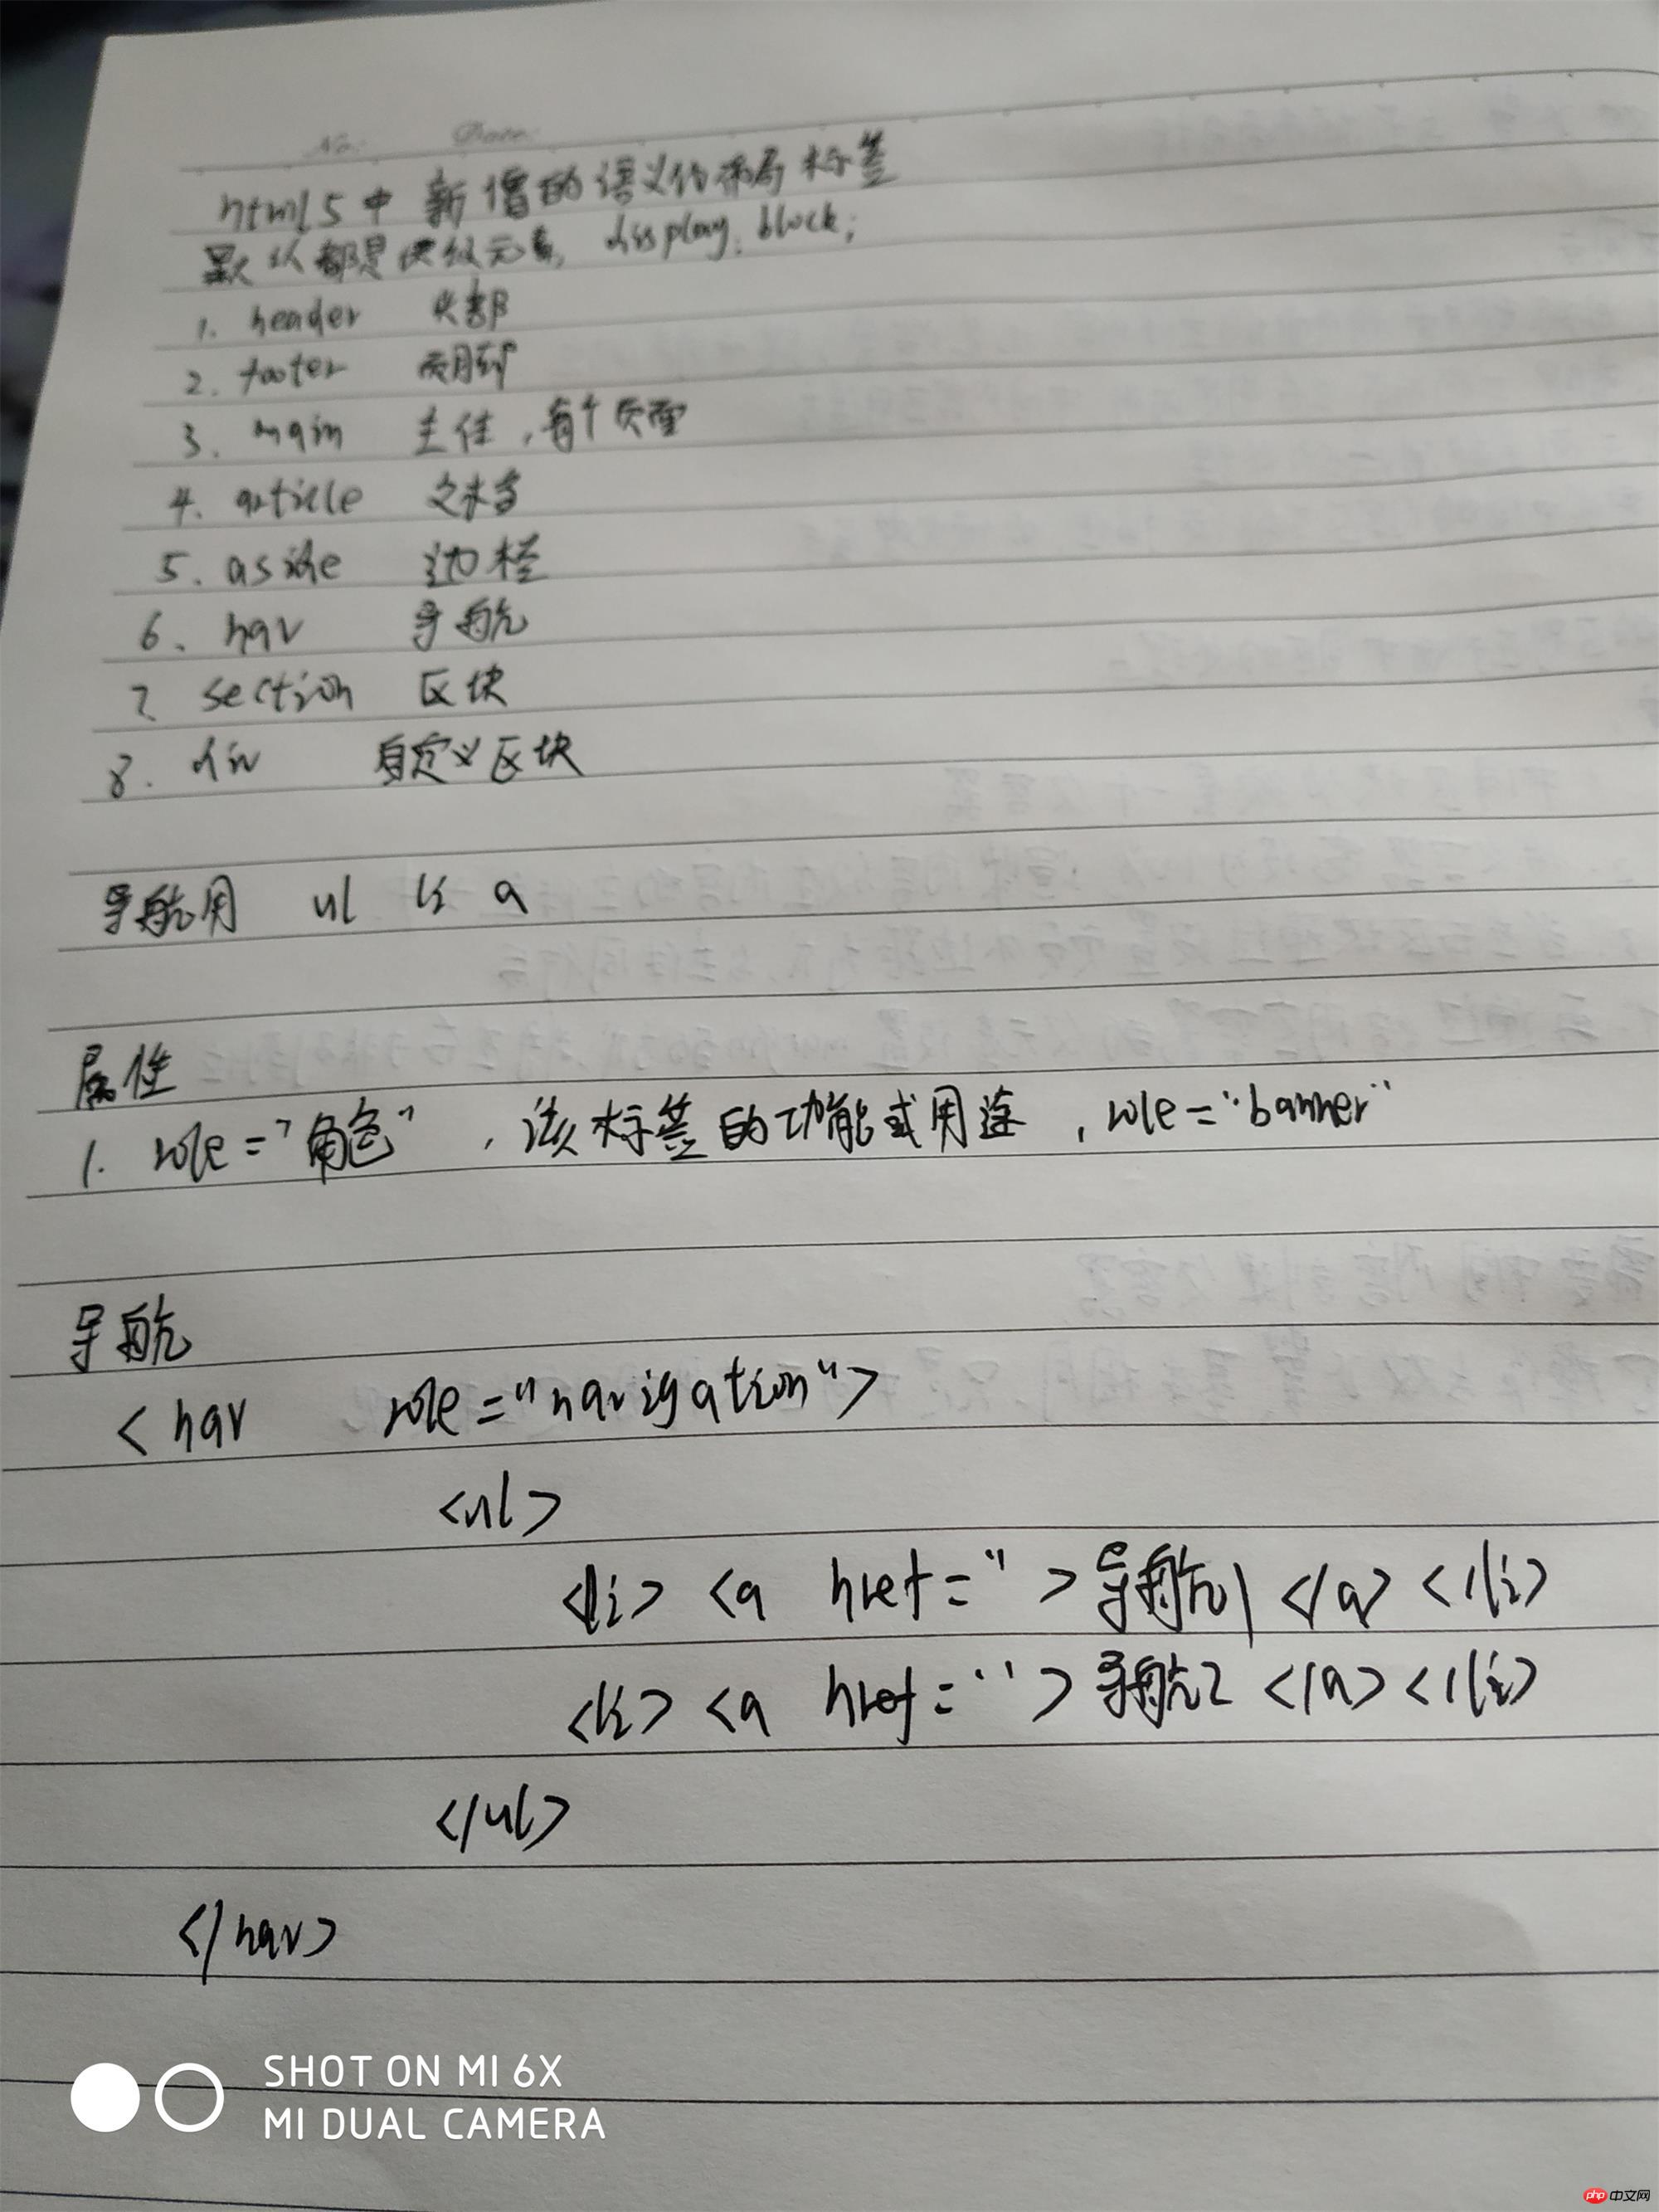 No: Date:
html5中 新增的语义化布局标签
默认都是块级元素, display: block;
1. header 头部
2. footer 页脚
3. main 主体, 每个页面
4. article 文本
5. aside 边栏
6. nav 导航
7. section 区块
8. div 自定义区块
导航用 ul li a
属性
1. role="角色", 该标签的功能或用途, role="banner"
导航
<nav role="navigation">
<ul>
<li> <a href=" >导航1 </a> </li>
<li> <a href='' >导航2 </a> </li>
</ul>
</nav>
SHOT ON MI 6X
MI DUAL CAMERA
php 中文网